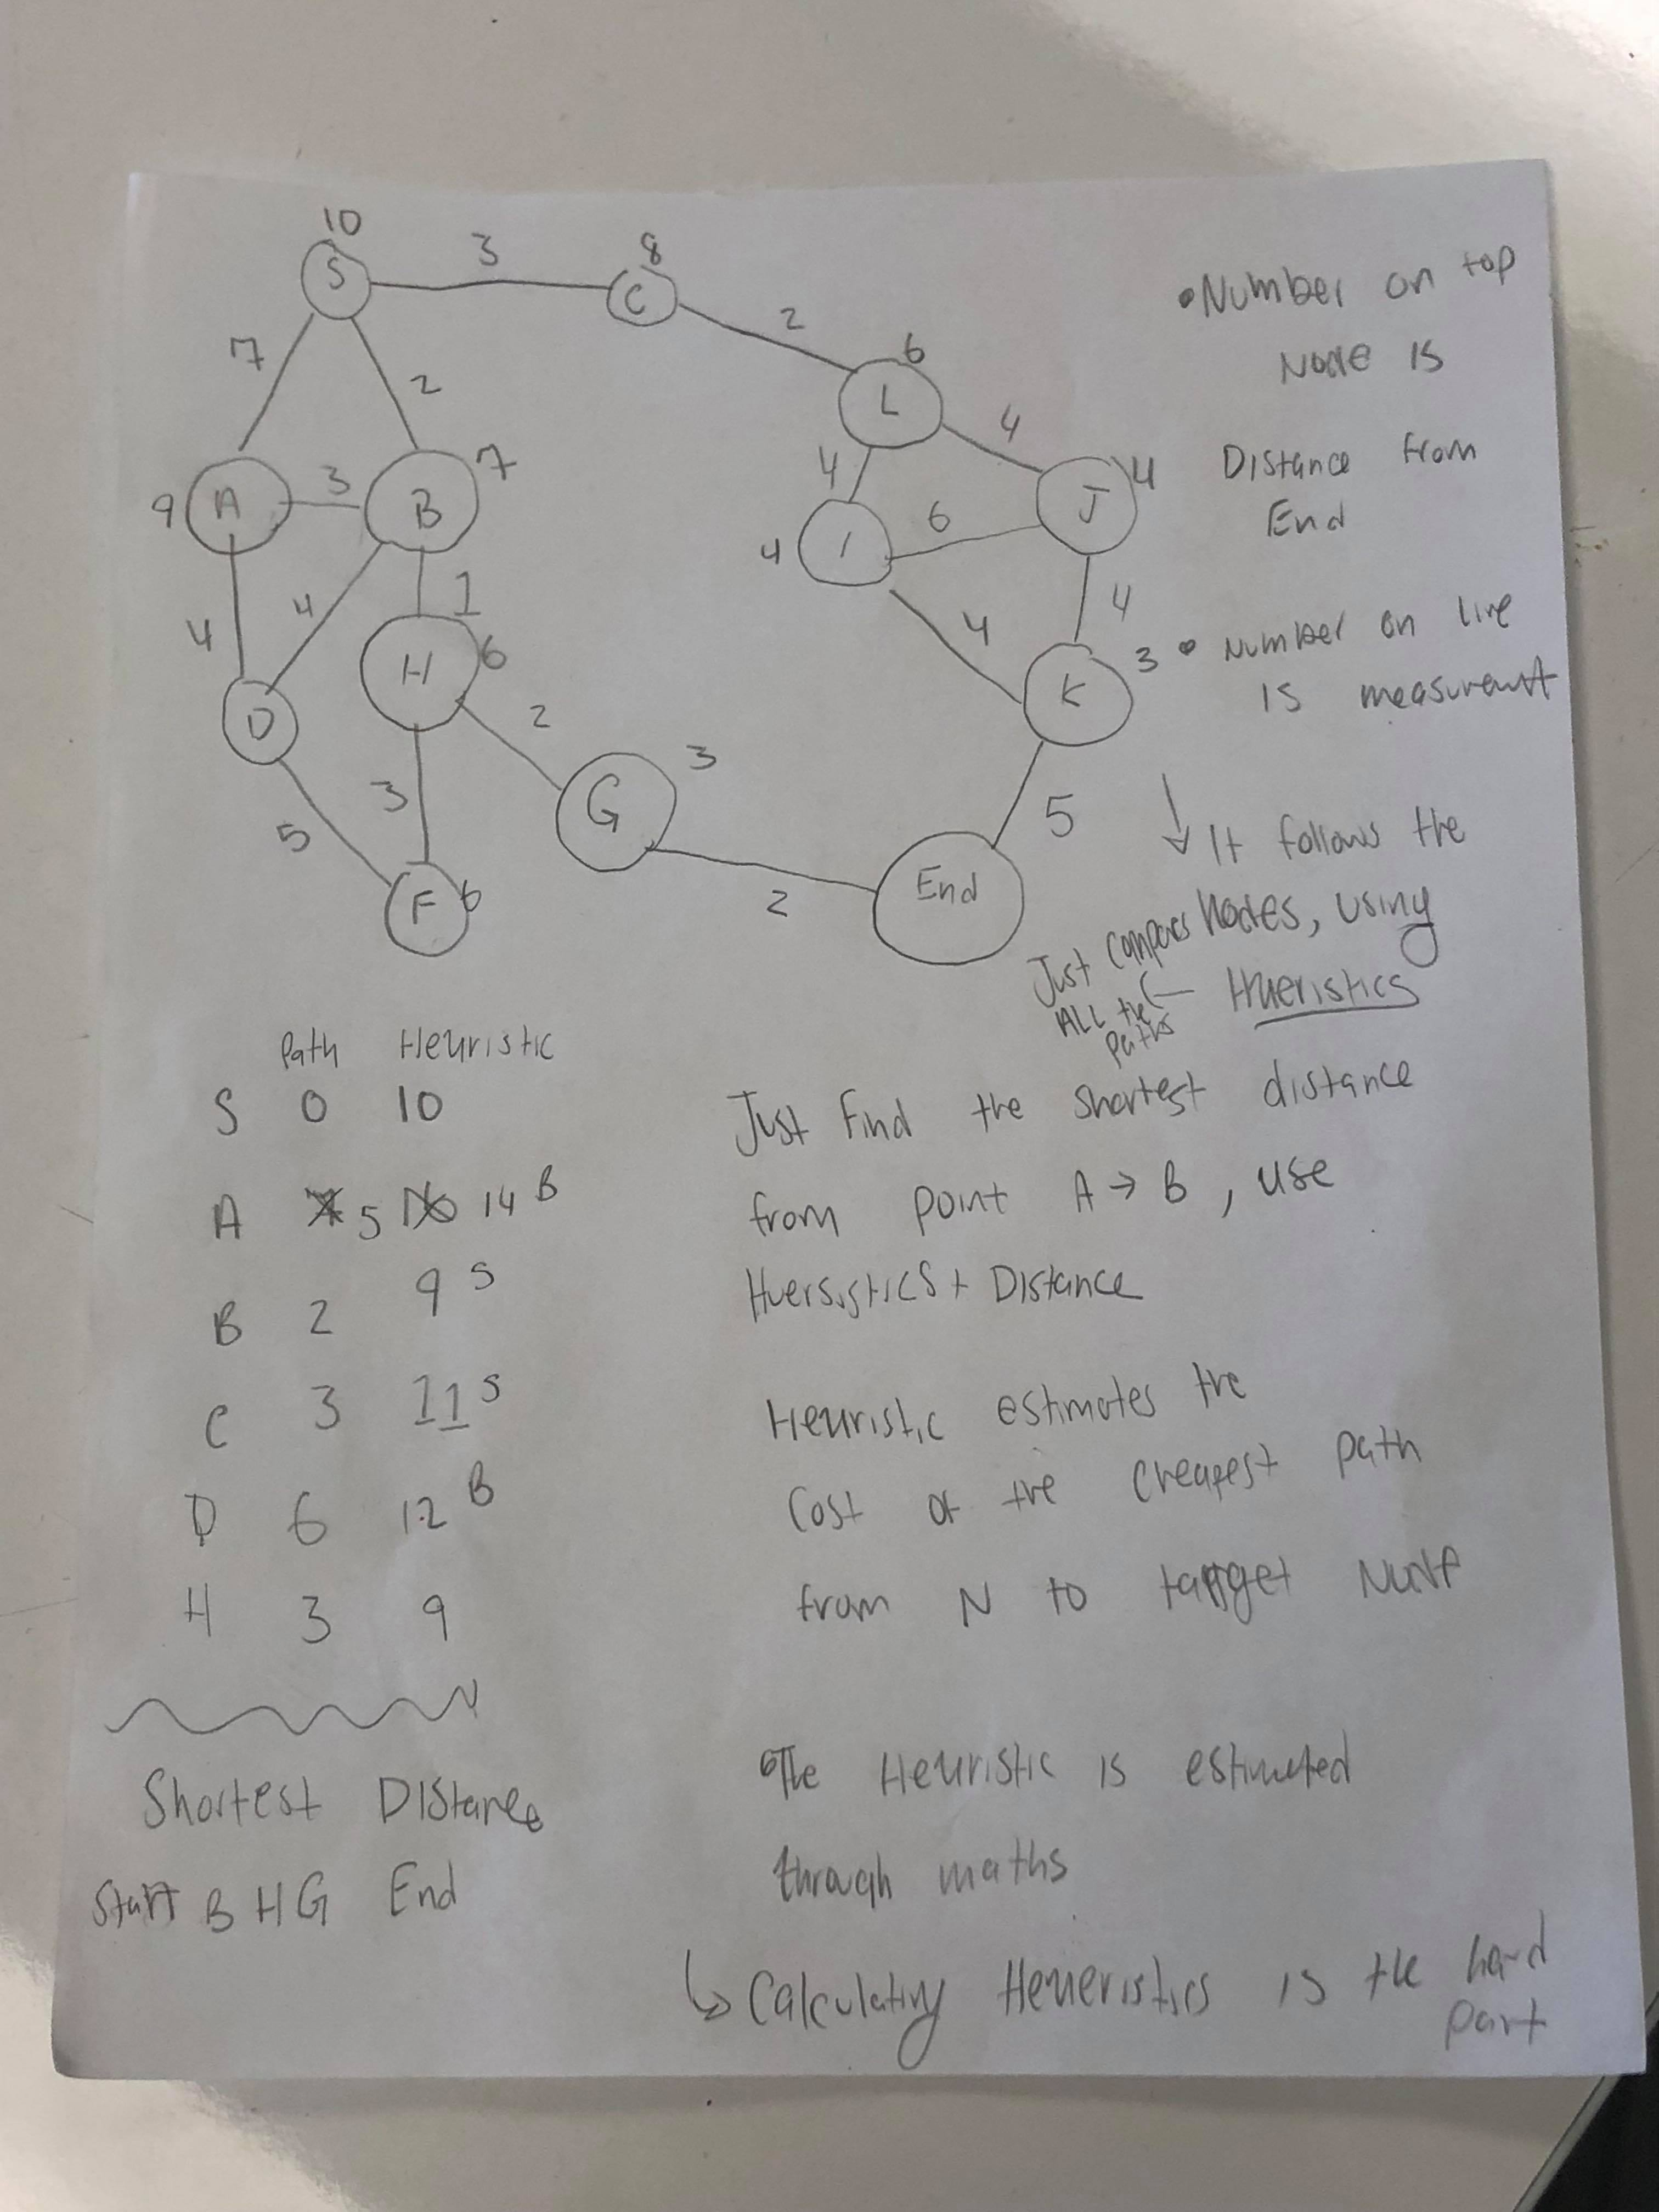 10
S
3
8
C
2
6
L
7
2
4
4
J
4
9
A
3
B
7
I
6
4
4
4
1
4
4
4
H
6
K
3
D
2
G
3
3
5
5
F
6
2
End
• Number on top
Node is
Distance from
End
• Number on line
is measuremnt
↓ It follows the
Nodes, using
Hueristics
Just compares
ALL the
paths
Path Heuristic
S 0 10
A 7 5 16 14 B
B 2 9 S
C 3 11 S
D 6 12 B
H 3 9
Shortest Distance
Start B H G End
Just Find the shortest distance
from point A → B, use
Huersistics + Distance
Heuristic estimates the
Cost of the cheapest path
from N to target Node
• The Heuristic is estimated
through maths
↳ Calculating Heueristics is the hard
part